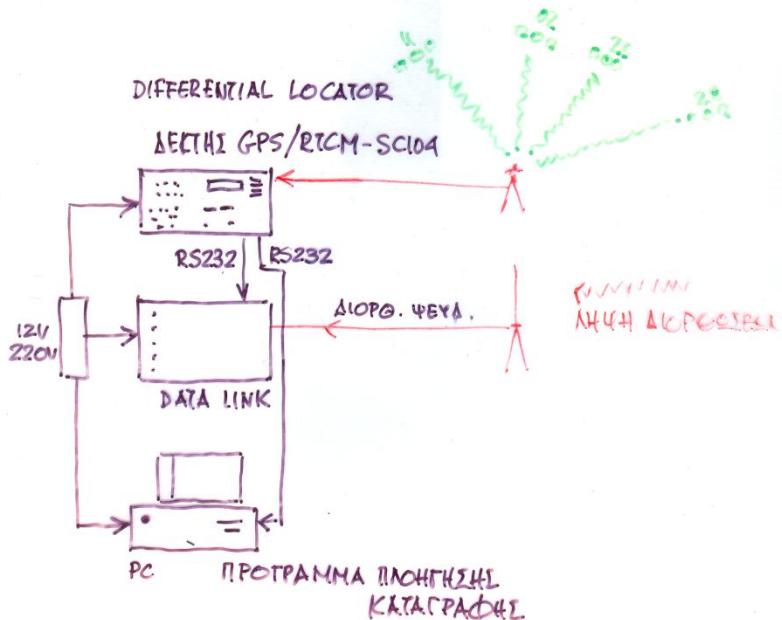 02
25
28
DIFFERENTIAL LOCATOR
ΔΕΚΤΗΣ GPS/RTCM-SC104
RS232
RS232
12V
220V
ΔΙΟΡΘ. ΨΕΥΔ.
ΛΗΨΗ ΔΙΟΡΘΩΣΕΩΝ
DATA LINK
PC
ΠΡΟΓΡΑΜΜΑ ΠΛΟΗΓΗΣΗΣ
ΚΑΤΑΓΡΑΦΗΣ